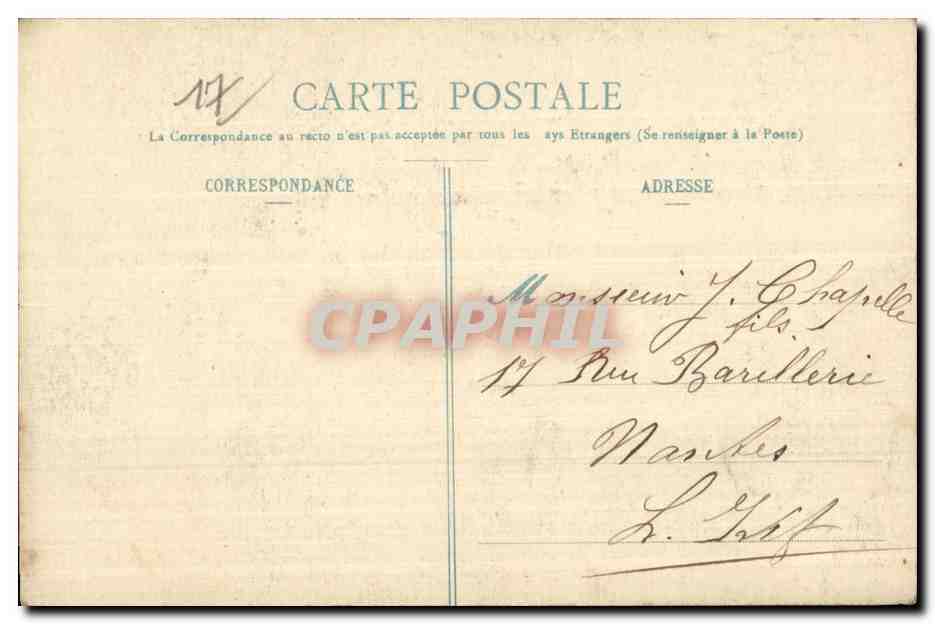 17
CARTE POSTALE
La Correspondance au recto n'est pas acceptée par tous les ays Etrangers (Se renseigner à la Poste)
CORRESPONDANCE
ADRESSE
Monsieur J. Chapelle
fils
CPAPHIL
17 Rue Barillerie
Nantes
L. Inf